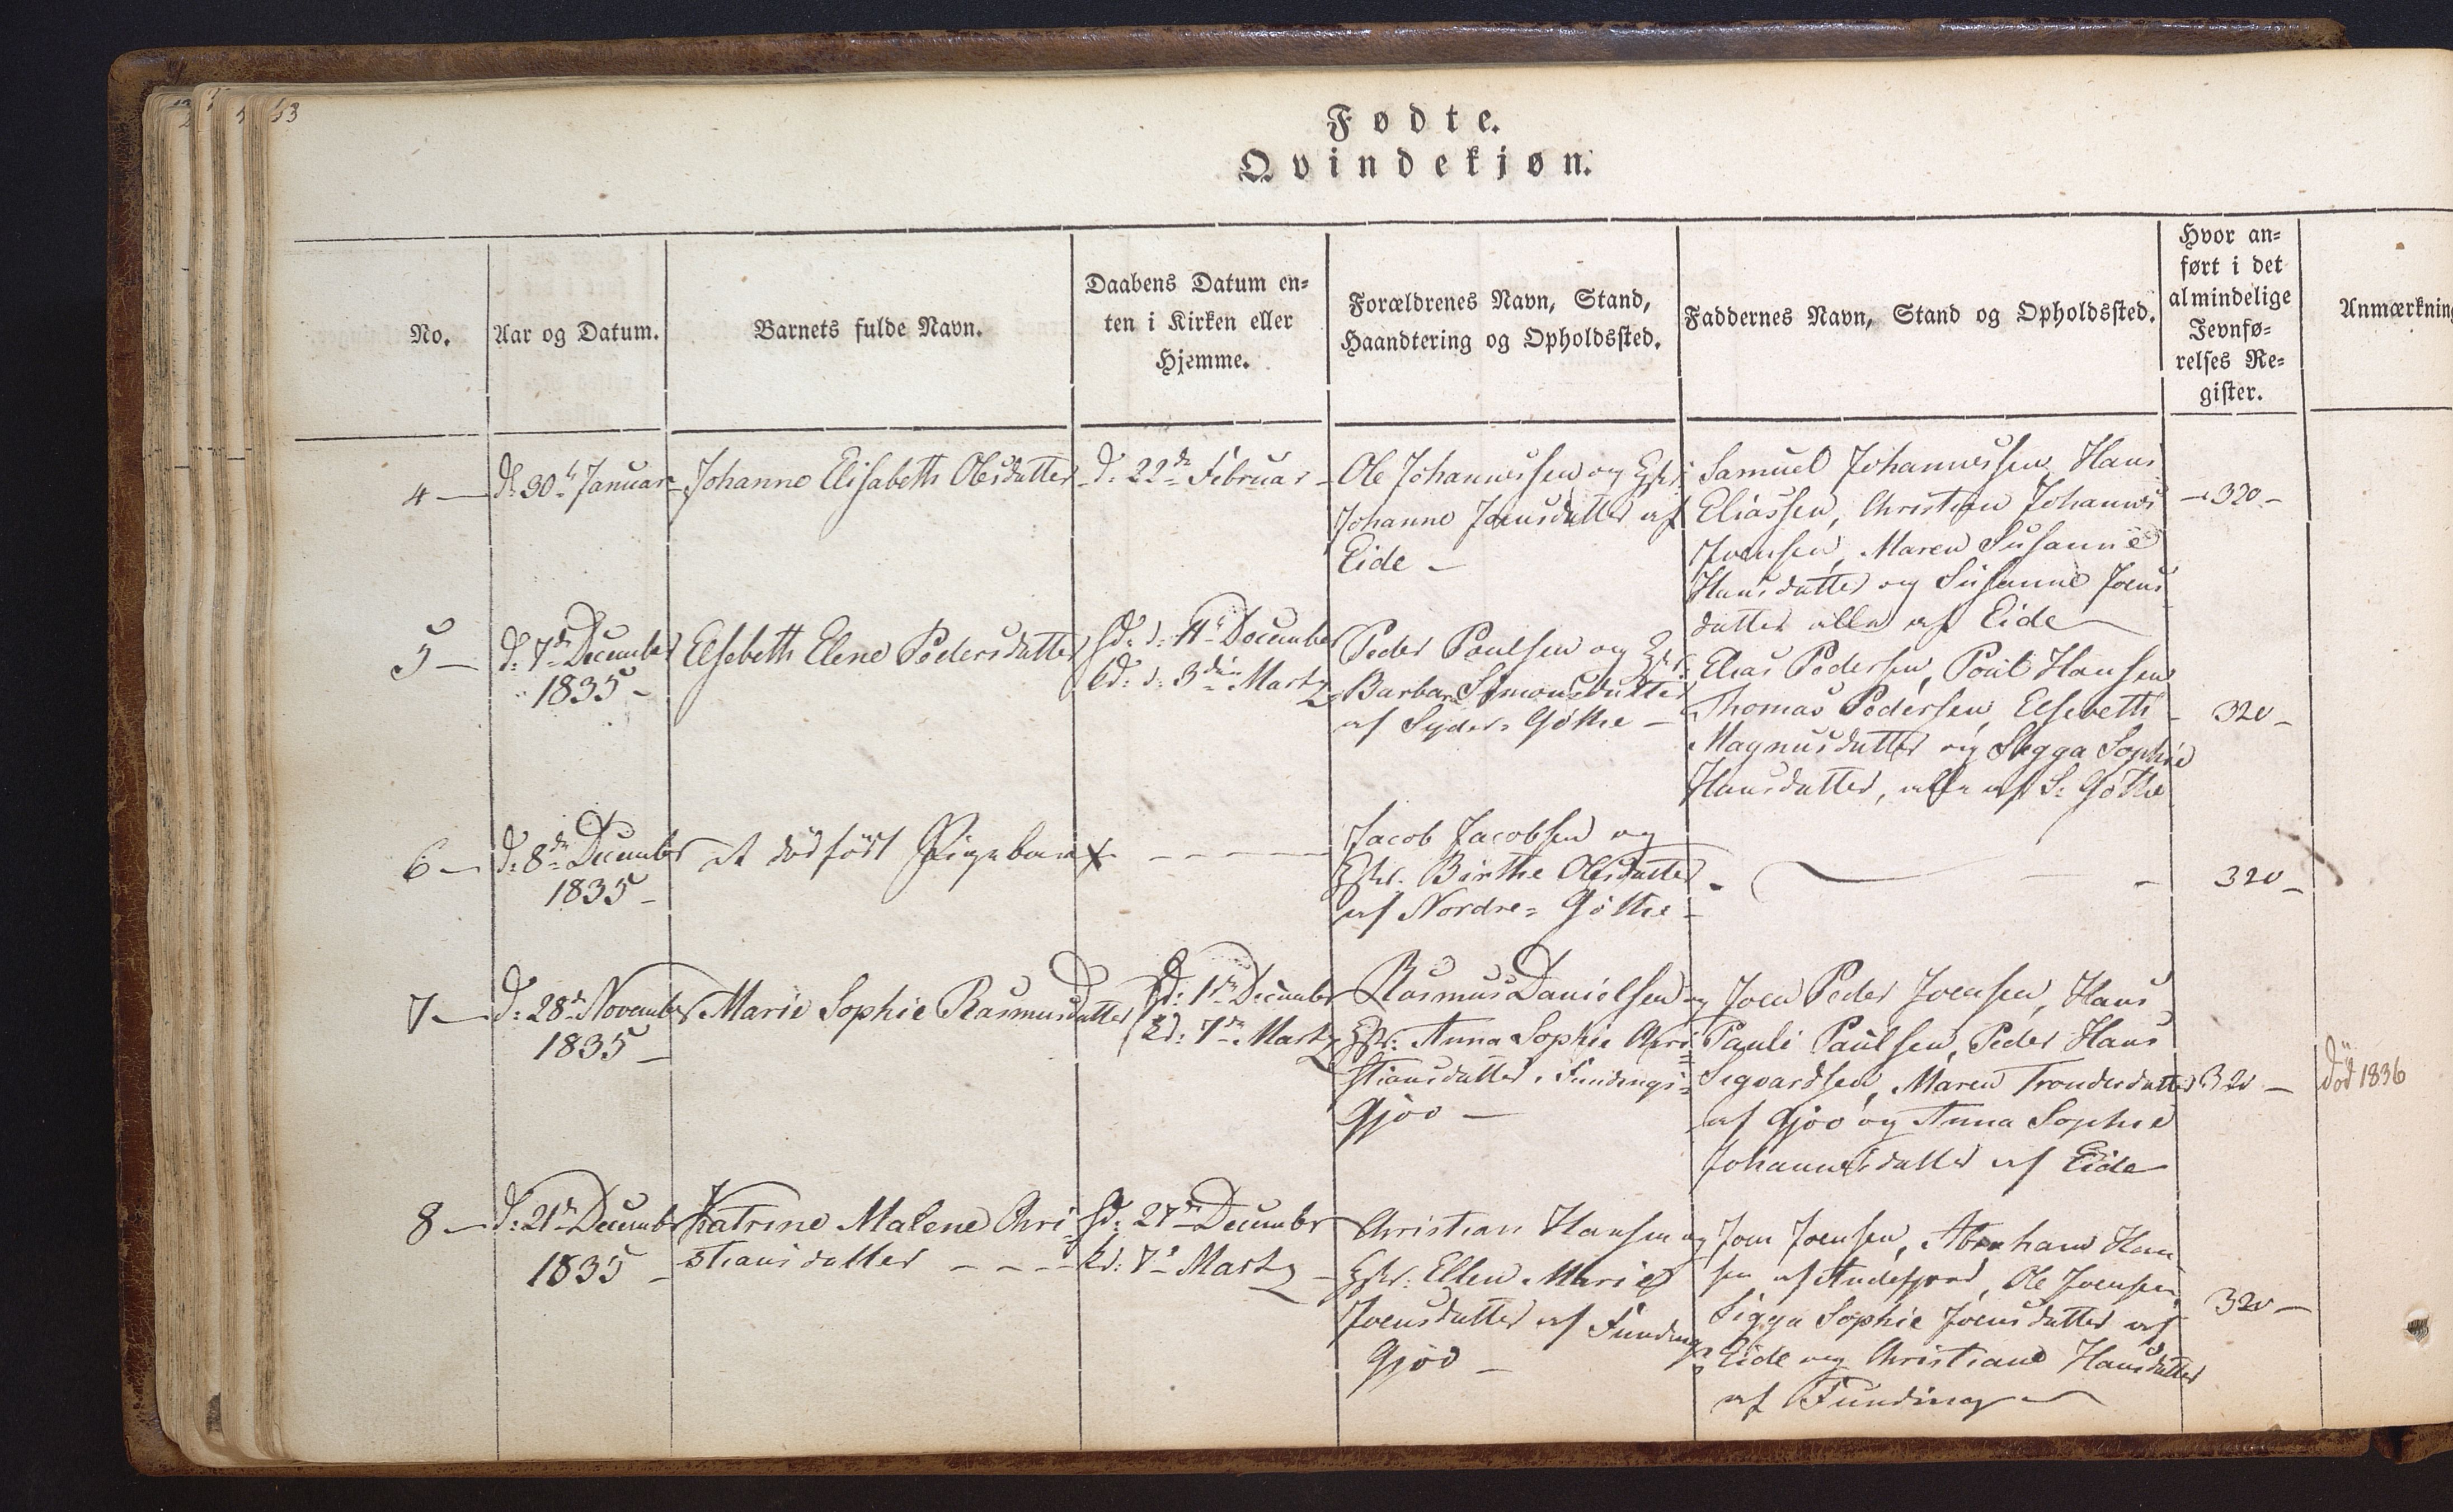 53
Fødte.
Qvindekjøn.
No.
Aar og Datum.
Barnets fulde Navn.
Daabens Datum en-
ten i Kirken eller
Hjemme.
Forældrenes Navn, Stand,
Haandtering og Opholdssted.
Faddernes Navn, Stand og Opholdssted.
Hvor an-
ført i det
almindelige
Jevnfø-
relses Re-
gister.
Anmærkning
4 —
d: 30t Januar
Johanne Elisabeth Olesdatter
d: 22de Februar
Ole Johannessen og Hstr:
Johanne Joensdatter af
Eide —
Samuel Johannessen, Hans
Eliassen, Christian Johannes
Joensen, Maren Susanne
Hansdatter og Susanne Joens
datter alle af Eide
- 320 -
5 —
d: 7de December
1835 -
Elsebeth Elene Pedersdatter
hd: d: 11te December
kd: d: 3die Marty
Peder Poulsen og Hstr:
Barbara Simonsdatter
af Syder- Gøthe —
Elias Pedersen, Poul Hansen
Thomas Pedersen, Elsebeth
Magnusdatter og Sigga Sophie
Hansdatter, alle af S: Gøthe
320 -
6 —
d: 8de December
1835 -
et dødfødt Pigebarn
Jacob Jacobsen og
Hstr. Birthe Olesdatter
af Nordre- Gøthe -
320 -
7 —
d: 28de November
1835 -
Marie Sophie Rasmusdatter
hd: 1te December
kd: 7de Marty
Rasmus Danielsen og
Hstr: Anna Sophie Chri-
stiansdatter. Fundings-
Gjov —
Joen Peder Joensen, Hans
Pauli Paulsen, Peder Hans
Sigvardsen, Maren Trondesdatter
af Gjov og Anna Sophie
Johannesdatter af Eide
320 -
död 1836
8 —
d: 21de December
1835 -
Katrine Malene Chri-
stiansdatter - - -
hd: 27de December
kd: 7de Marty
Christian Hansen og
Hstr: Ellen Marie
Joensdatter af Fundings
Gjov —
Joen Joensen, Abraham Han
sen af Andefjord, Ole Joensen,
Sigga Sophie Joensdatter af
Eide og Christiane Hansdatter
af Funding
320 -